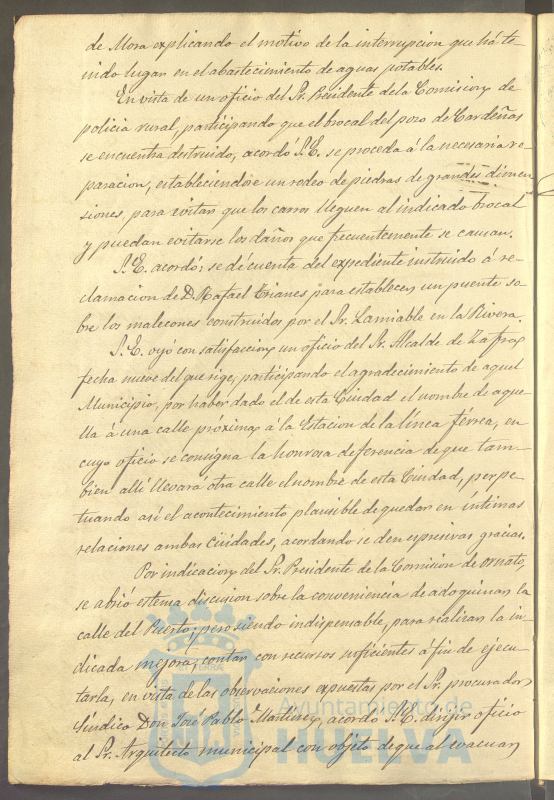 de Mora explicando el motivo de la interrupcion que há te-
nido lugar en el abastecimiento de aguas potables.
En vista de un oficio del Sr. Presidente de la Comision de
policia rural, participando que el brocal del pozo de Cardeñas
se encuentra destruido, acordó S.E. se proceda á la necesaria re-
paracion, estableciendose un rodeo de piedras de grandes dimen-
siones, para evitar que los carros lleguen al indicado brocal
y puedan evitarse los daños que frecuentemente se causan.
S.E. acordó: se dé cuenta del expediente instruido á re-
clamacion de D. Rafael Trianes para establecer un puente so-
bre los malecones construidos por el Sr. Lamiable en la Rivera.
S.E. oyó con satisfaccion un oficio del Sr. Alcalde de Zafra,
fecha nueve del que rige, participando el agradecimiento de aquel
Municipio, por haber dado el de esta Ciudad el nombre de aque-
lla á una calle próxima á la Estacion de la línea férrea, en
cuyo oficio se consigna la honrosa deferencia de que tam-
bien allí llevará otra calle el nombre de esta Ciudad, perpe-
tuando así el acontecimiento plausible de quedar en íntimas
relaciones ambas Ciudades, acordando se den espresivas gracias.
Por indicacion del Sr. Presidente de la Comision de ornato,
se abrió estensa discusion sobre la conveniencia de adoquinar la
calle del Puerto; pero siendo indispensable, para realizar la in-
dicada mejora, contar con recursos suficientes á fin de ejecu-
tarla, en vista de las observaciones expuestas por el Sr. procurador
Síndico Don José Pablo Martinez, acordó S.E. dirijir oficio
al Sr. Arquitecto municipal con objeto de que al evacuar
Ayuntamiento de
HUELVA